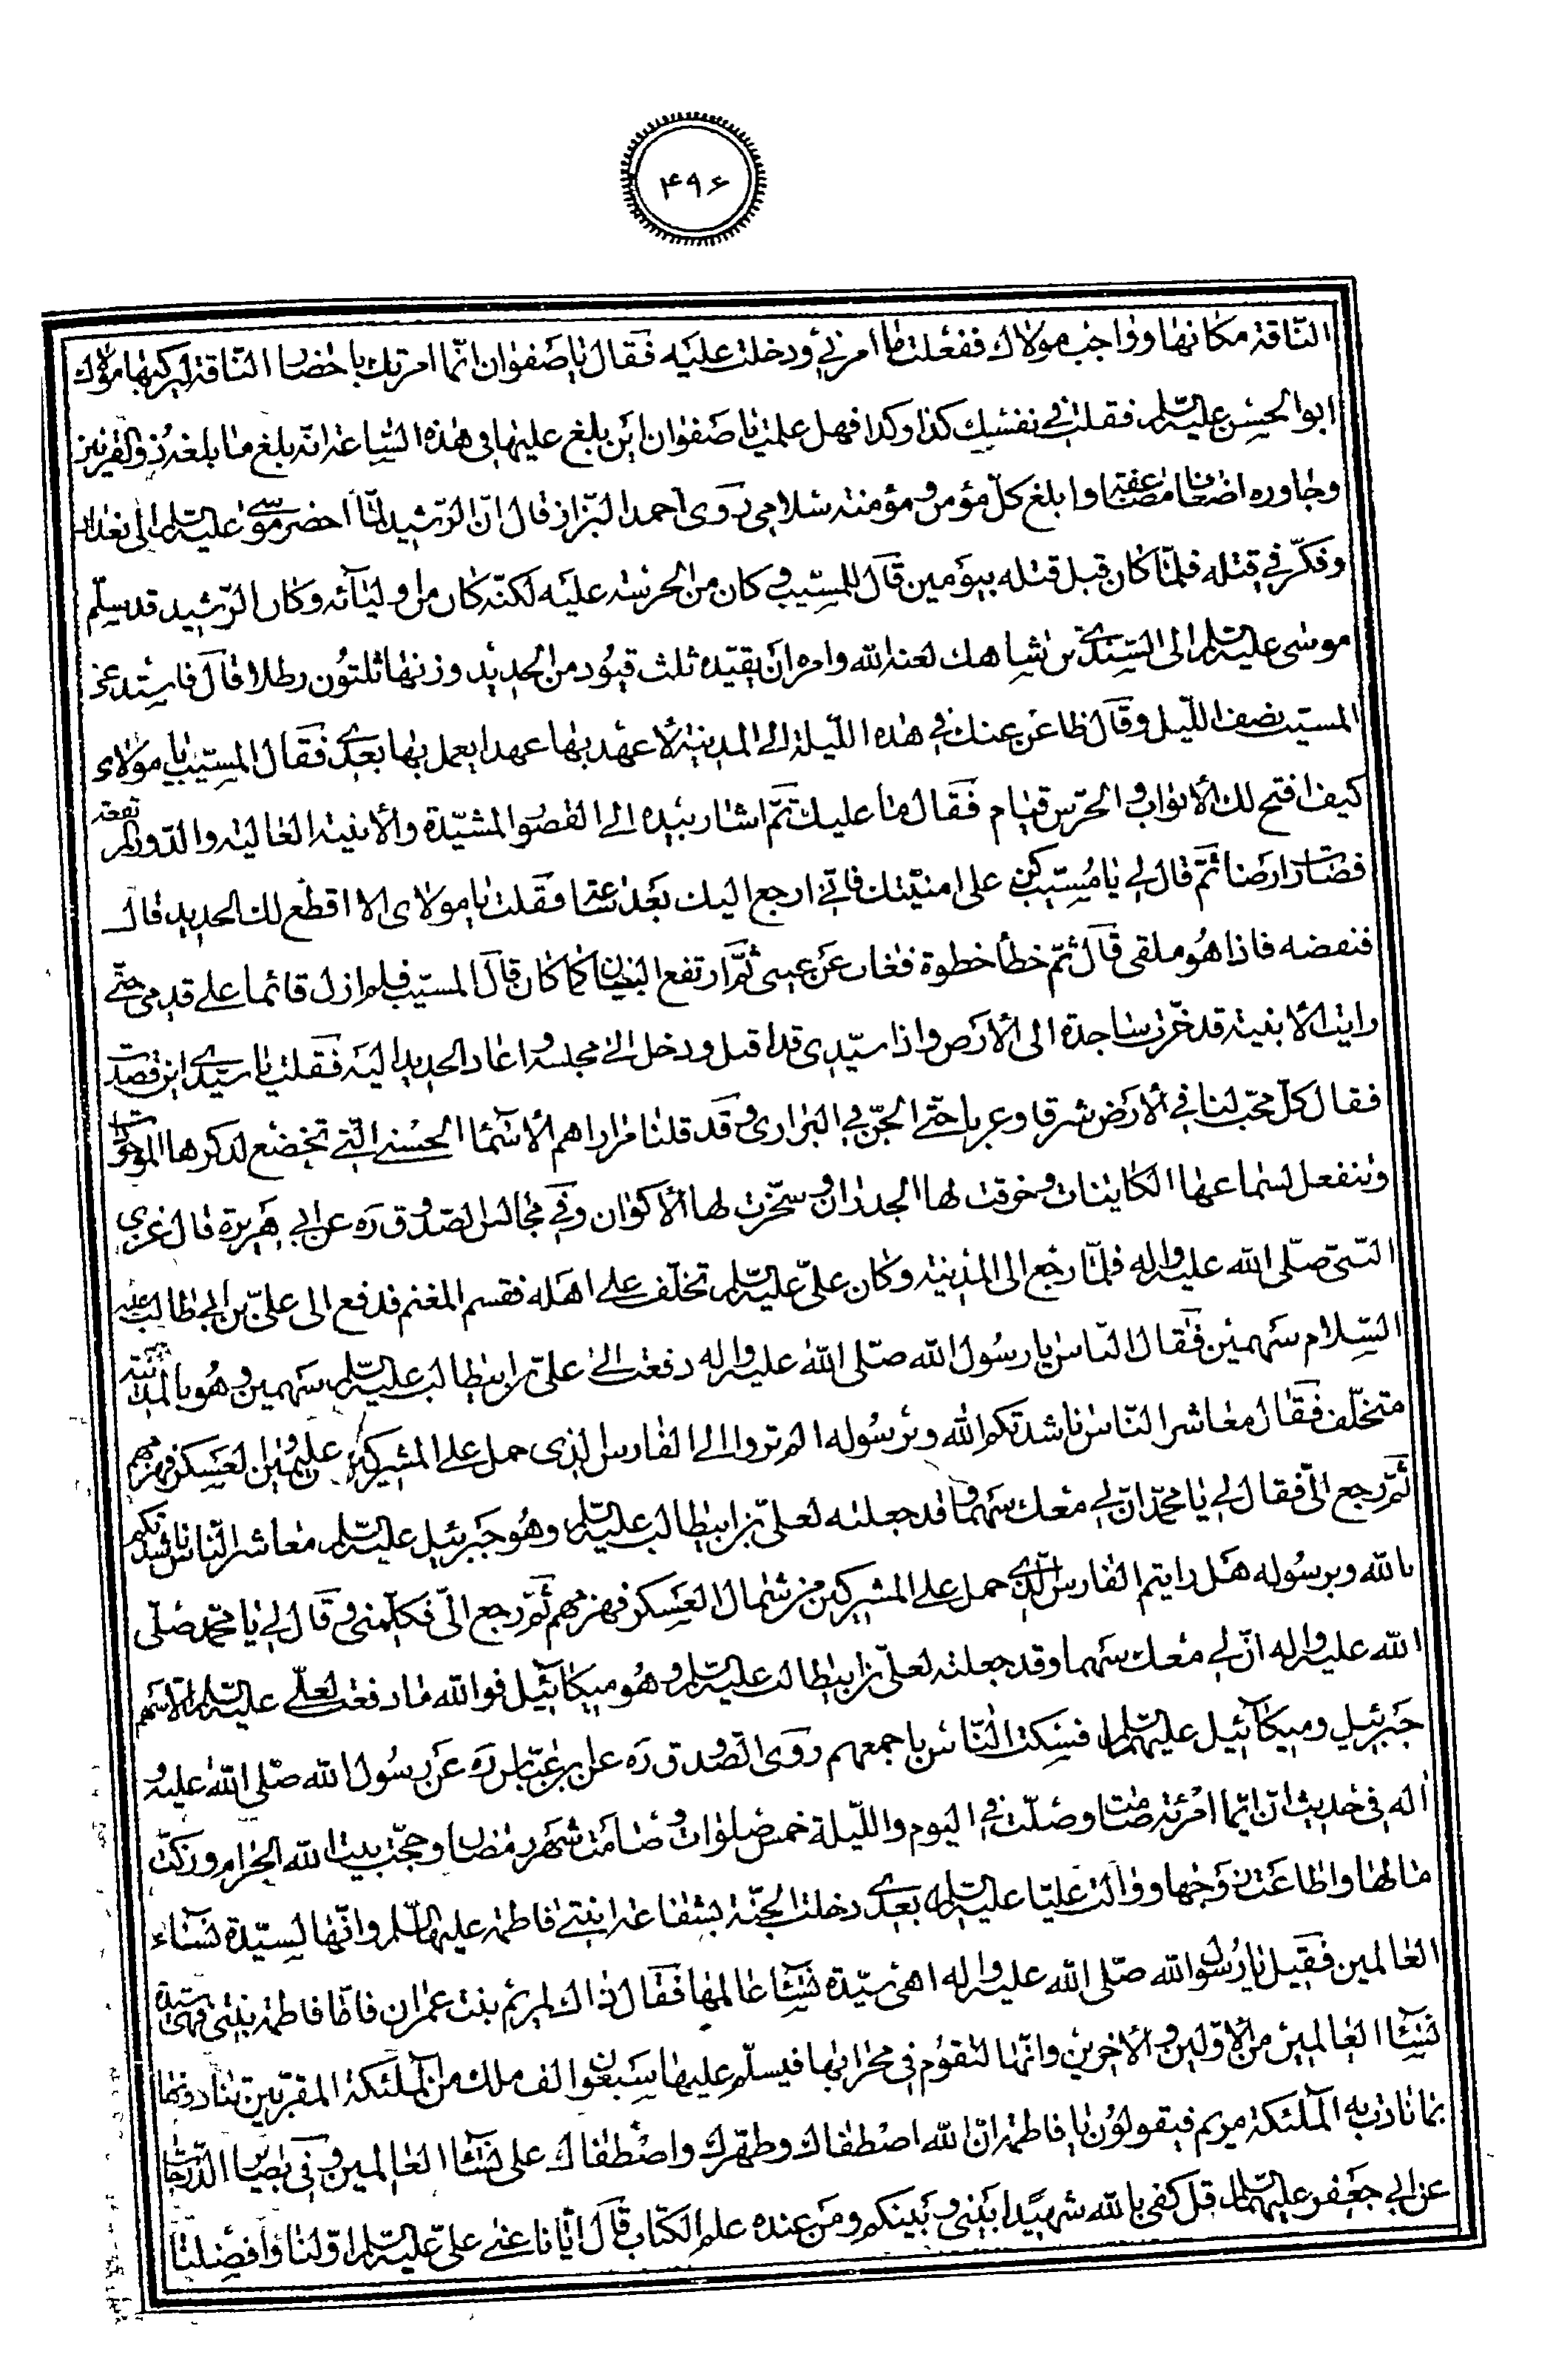 ۴۹۶
الناقة مكانها وواجب مولاك ففعلت ما امرني ودخلت عليه فقال يا صفوان انّما امرتك باحضار الناقة ليركبها مولاك
ابو الحسن عليه السلم فقلت في نفسك كذا وكذا فهل علمت يا صفوان اين بلغ عليها في هذه الساعة انه بلغ ما بلغه ذو القرنين
وجاوره اضعافا مضاعفة وابلغ كل مؤمن ومؤمنة سلامي روى احمد البزاز قال ان الرشيد لمّا احضر موسى عليه السلم الى بغداد
وفكّر في قتله فلمّا كان قبل قتله بيومين قال للمسيب وكان من الحرسة عليه لكنّه كان من اوليائه وكان الرشيد قد سلّم
موسى عليه السلم الى السندي بن شاهك لعنه الله وامره ان يقيّده ثلث قيود من الحديد وزنها ثلثون رطلا قال فاستدعى
المسيب نصف الليل وقال ظاعن عنك في هذه الليلة الى المدينة لأعهد بها عهدا يعمل بها بعدي فقال المسيب يا مولاي
كيف افتح لك الأبواب والحرس قيام فقال ما عليك ثمّ اشار بيده الى القصور المشيّدة والأبنية العالية والدور المرتفعة
فصارت ارضا ثمّ قال لي يا مسيب كن على امنيتك فاني ارجع اليك بعد ساعة فقلت يا مولاي الا اقطع لك الحديد قال
فنفضه فاذا هو ملقى قال ثمّ خطا خطوة فغاب عن عيني ثمّ ارتفع البنيان كما كان قال المسيب فلم ازل قائما على قدمي حتّى
رايت الأبنية قد خرّت ساجدة الى الأرض واذا سيّدي قد اقبل ودخل الى مجلسه واعاد الحديد اليه فقلت يا سيّدي اين قصدت
فقال كل محبّ لنا في الأرض شرقا وغربا حتّى الجنّ في البراري وقد قلنا مرارا هم الأسماء الحسنى التي تخضع لذكرها الموجودات
وتنفعل لسماعها الكاينات وخرقت لها الجدران وسخّرت لها الأكوان وفي مجالس الصدوق ره عن ابي هريرة قال غزى
النبيّ صلّى الله عليه واله فلمّا رجع الى المدينة وكان عليّ عليه السلم تخلّف على اهله فقسم المغنم فدفع الى عليّ بن ابي طالب عليه
السلام سهمين فقال الناس يا رسول الله صلّى الله عليه واله دفعت الى عليّ بن ابيطالب عليه السلم سهمين وهو بالمدينة
متخلّف فقال معاشر الناس ناشدتكم الله وبرسوله الم تروا الى الفارس الذي حمل على المشركين عن يمين العسكر فهزمهم
ثمّ رجع الىّ فقال لي يا محمّد ان لي معك سهما وقد جعلته لعليّ بن ابيطالب عليه السلم وهو جبرئيل عليه السلم معاشر الناس ناشدتكم
بالله وبرسوله هل رايتم الفارس الذي حمل على المشركين من شمال العسكر فهزمهم ثمّ رجع الىّ فكلّمني وقال لي يا محمّد صلّى
الله عليه واله انّ لي معك سهما وقد جعلته لعليّ بن ابيطالب عليه السلم وهو ميكائيل فوالله ما دفعت لعليّ عليه السلم الا سهم
جبرئيل وميكائيل عليهما السلم فسكت الناس باجمعهم روى الصدوق ره عن ابن عبّاس ره عن رسول الله صلّى الله عليه و
اله في حديث انّ ايّما امرئة صامت وصلّت في اليوم والليلة خمس صلوات وصامت شهر رمضان وحجّت بيت الله الحرام وزكّت
مالها واطاعت زوجها ووالت عليّا عليه السلم بعدي دخلت الجنّة بشفاعة ابنتي فاطمة عليها السلم وانّها لسيّدة نساء
العالمين فقيل يا رسول الله صلّى الله عليه واله اهي سيّدة نساء عالمها فقال ذاك لمريم بنت عمران فامّا فاطمة بنتي فهي سيّدة
نساء العالمين من الأوّلين والأخرين وانّها لتقوم في محرابها فيسلّم عليها سبعون الف ملك من الملئكة المقرّبين ينادونها
بما نادت به الملئكة مريم فيقولون يا فاطمة انّ الله اصطفاك وطهّرك واصطفاك على نساء العالمين وفي بصائر الدّرجات
عن ابي جعفر عليهما السلم قل كفى بالله شهيدا بيني وبينكم ومن عنده علم الكتاب قال ايّانا عنى عليّ عليه السلم اوّلنا وافضلنا